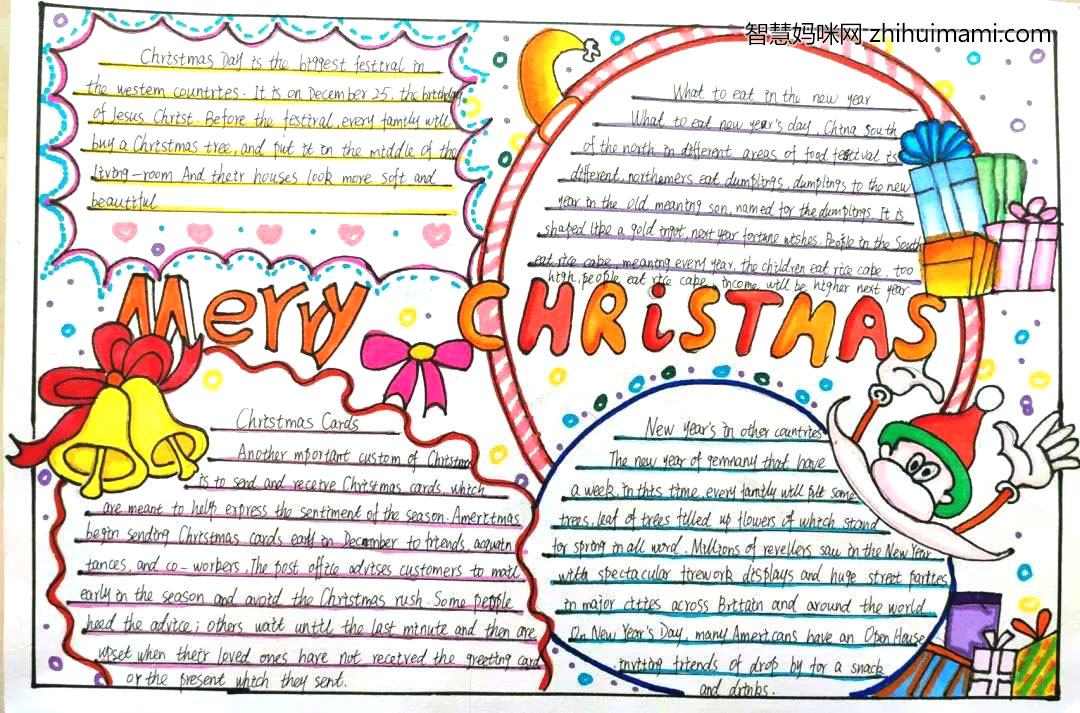 智慧妈咪网-zhihuimami.com
Christmas Day is the biggest festival in
the western countries. It is on December 25, the birthday
of Jesus Christ. Before the festival, every family will
buy a Christmas tree, and put it in the middle of the
living-room And their houses look more soft and
beautiful
What to eat in the new year
What to eat new year's day, China south
of the north in different areas of food festival is
different, northemers eat dumplings, dumplings to the new
year in the old meaning son, named for the dumplings It is
shaped like a gold ingot, next year fortune wishes. People in the South
eat rice cake, meaning every year, the children eat rice cake, too
high, people eat rice cake, income will be higher next year
Merry CHRISTMAS
Christmas Cards
Another mportant custom of Christmas
is to send and receive Christmas cards, which
are meant to help express the sentiment of the season. Americtmas
begin sending Christmas cards early in December to friends, acquain
tances, and co-workers. The post office advises customers to mail
early in the season and avoid the Christmas rush Some people
heed the advice; others wait until the last minute and then are
upset when their loved ones have not received the greeting card
or the present which they sent.
New year's in other countries
The new year of germany that have
a week, in this time, every family will put some
trees, leaf of trees filled up flowers of which stand
for spring in all word. Millions of revellers saw in the New Year
with spectacular firework displays and huge street parties
in major cities across Brittain and around the world
On New Year's Day, many Americans have an Open House
inviting friends of drop by for a snack
and drinks.